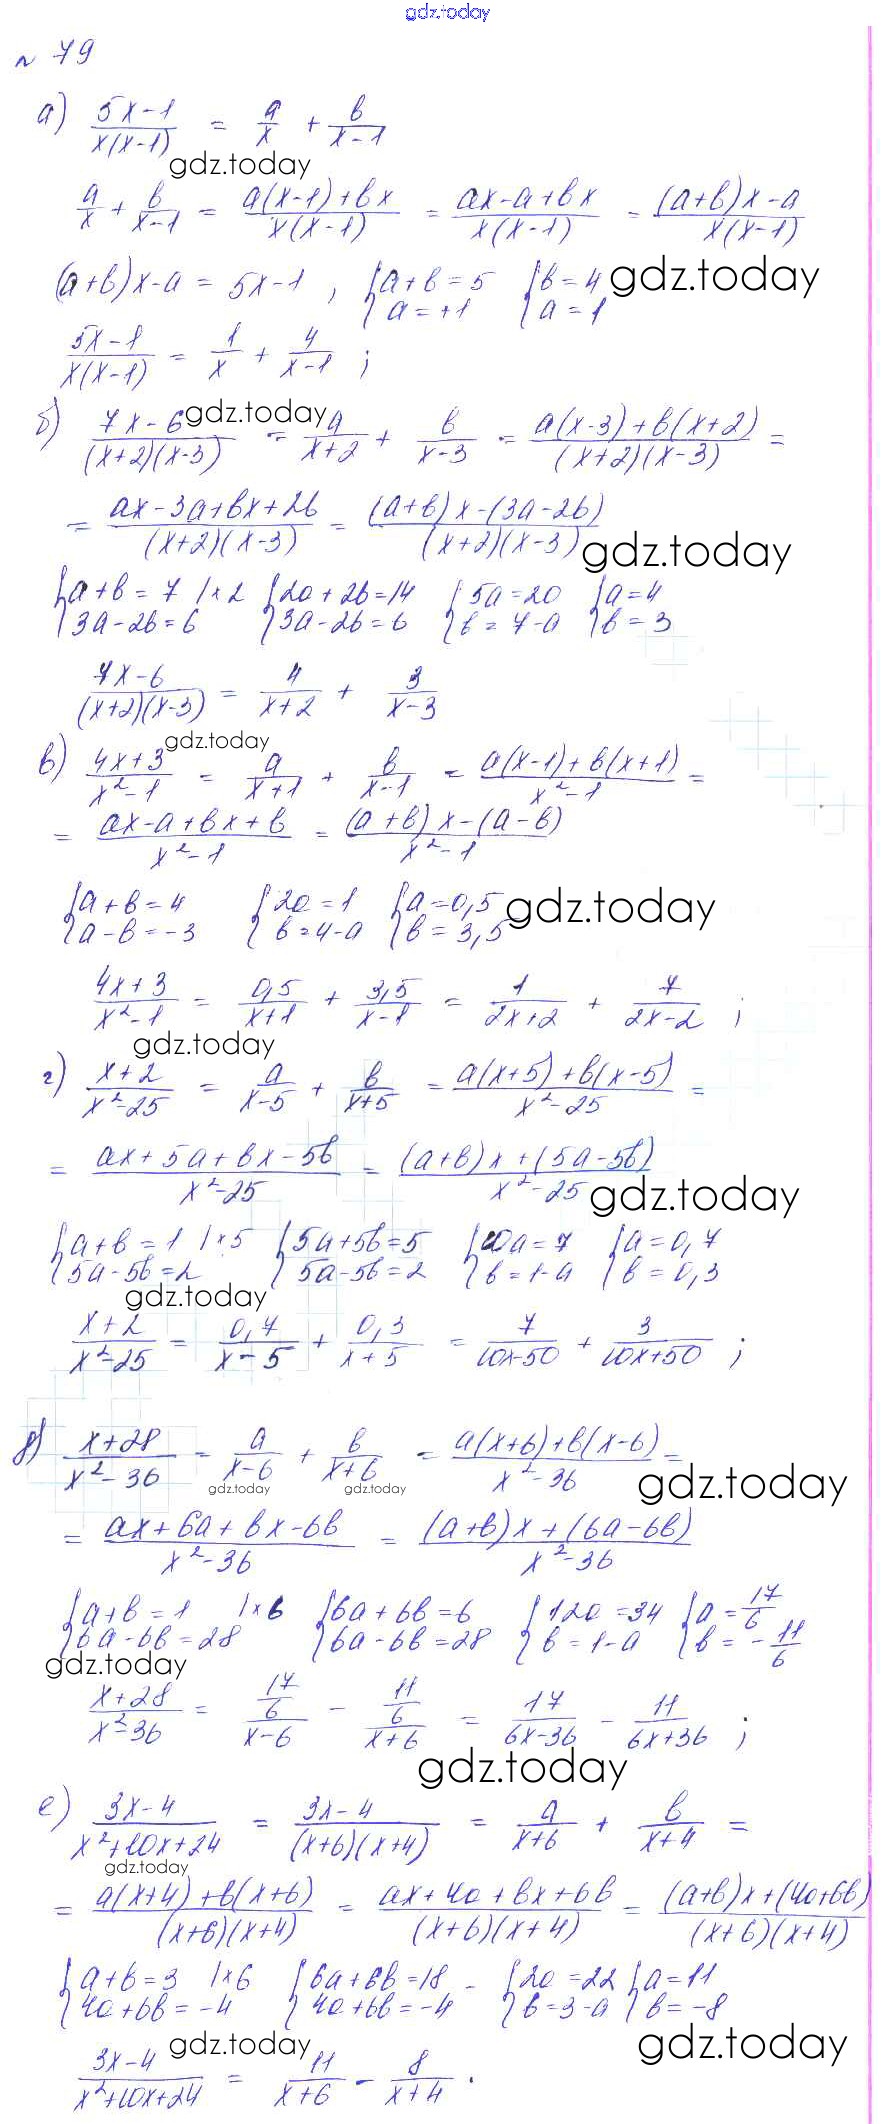 gdz.today
№ 79
а) (5x-1)/(x(x-1)) = a/x + b/(x-1)
gdz.today
a/x + b/(x-1) = (a(x-1)+bx)/(x(x-1)) = (ax-a+bx)/(x(x-1)) = ((a+b)x-a)/(x(x-1))
(a+b)x-a = 5x-1 , {a+b=5 {b=4 gdz.today
{a=+1 {a=1
(5x-1)/(x(x-1)) = 1/x + 4/(x-1) ;
gdz.today
б) (7x-6)/((x+2)(x-3)) = a/(x+2) + b/(x-3) = (a(x-3)+b(x+2))/((x+2)(x-3)) =
= (ax-3a+bx+2b)/((x+2)(x-3)) = ((a+b)x-(3a-2b))/((x+2)(x-3))
gdz.today
{a+b=7 |×2 {2a+2b=14 {5a=20 {a=4
{3a-2b=6 {3a-2b=6 {b=7-a {b=3
(7x-6)/((x+2)(x-3)) = 4/(x+2) + 3/(x-3)
gdz.today
в) (4x+3)/(x²-1) = a/(x+1) + b/(x-1) = (a(x-1)+b(x+1))/(x²-1) =
= (ax-a+bx+b)/(x²-1) = ((a+b)x-(a-b))/(x²-1)
{a+b=4 {2a=1 {a=0,5 gdz.today
{a-b=-3 {b=4-a {b=3,5
(4x+3)/(x²-1) = 0,5/(x+1) + 3,5/(x-1) = 1/(2x+2) + 7/(2x-2) ;
gdz.today
г) (x+2)/(x²-25) = a/(x-5) + b/(x+5) = (a(x+5)+b(x-5))/(x²-25) =
= (ax+5a+bx-5b)/(x²-25) = ((a+b)x+(5a-5b))/(x²-25)
gdz.today
{a+b=1 |×5 {5a+5b=5 {10a=7 {a=0,7
{5a-5b=2 {5a-5b=2 {b=1-a {b=0,3
gdz.today
(x+2)/(x²-25) = 0,7/(x-5) + 0,3/(x+5) = 7/(10x-50) + 3/(10x+50) ;
д) (x+28)/(x²-36) = a/(x-6) + b/(x+6) = (a(x+6)+b(x-6))/(x²-36) =
gdz.today gdz.today gdz.today
= (ax+6a+bx-6b)/(x²-36) = ((a+b)x+(6a-6b))/(x²-36)
{a+b=1 |×6 {6a+6b=6 {12a=34 {a=17/6
{6a-6b=28 {6a-6b=28 {b=1-a {b=-11/6
gdz.today
(x+28)/(x²-36) = (17/6)/(x-6) - (11/6)/(x+6) = 17/(6x-36) - 11/(6x+36) ;
gdz.today
е) (3x-4)/(x²+10x+24) = (3x-4)/((x+6)(x+4)) = a/(x+6) + b/(x+4) =
gdz.today
= (a(x+4)+b(x+6))/((x+6)(x+4)) = (ax+4a+bx+6b)/((x+6)(x+4)) = ((a+b)x+(4a+6b))/((x+6)(x+4))
{a+b=3 |×6 {6a+6b=18 - {2a=22 {a=11
{4a+6b=-4 {4a+6b=-4 {b=3-a {b=-8
gdz.today gdz.today
(3x-4)/(x²+10x+24) = 11/(x+6) - 8/(x+4) .